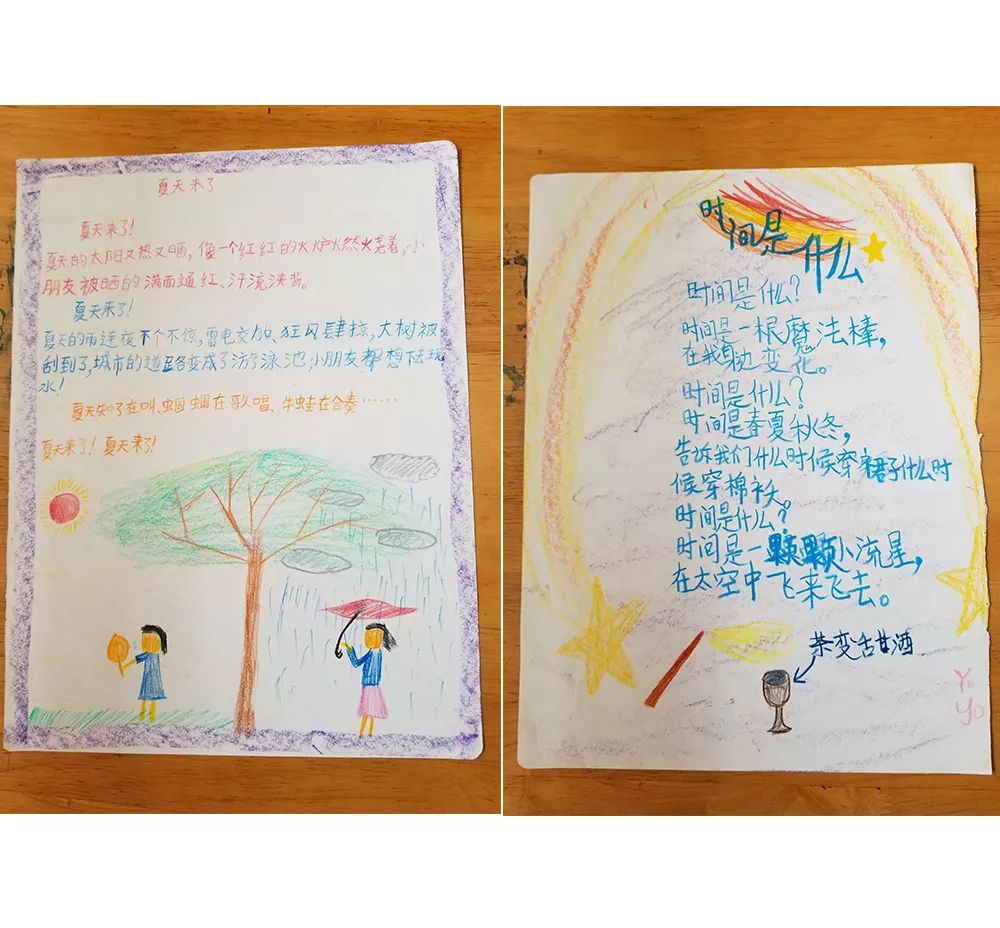 夏天来了
夏天来了!
夏天的太阳又热又晒,像一个红红的火炉燃烧着,小
朋友被晒的满面通红、汗流浃背。
夏天来了!
夏天的雨连夜下个不惊,雷电交加,狂风肆掠,大树被
刮到了,城市的道路变成了游泳池,小朋友都想去玩
水!
夏天知了在叫、蝈蝈在歌唱、牛蛙在合奏……
夏天来了!夏天来了!
时间是什么
时间是什么?
时间是一根魔法棒,
在我身边变化。
时间是什么?
时间是春夏秋冬,
告诉我们什么时候穿裙子什么时
候穿棉袄。
时间是什么?
时间是一颗颗小流星,
在太空中飞来飞去。
茶变舌甘酒
Yo
Yo